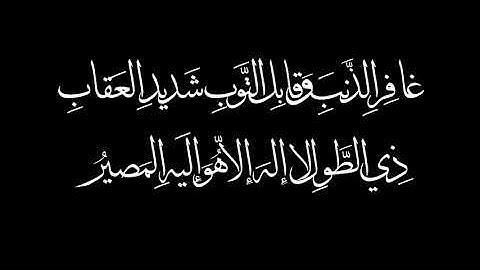 غافِرِ الذَّنبِ وَقابِلِ التَّوبِ شَديدِ العِقابِ
ذِي الطَّولِ لا إِلهَ إِلّا هُوَ إِلَيهِ المَصيرُ